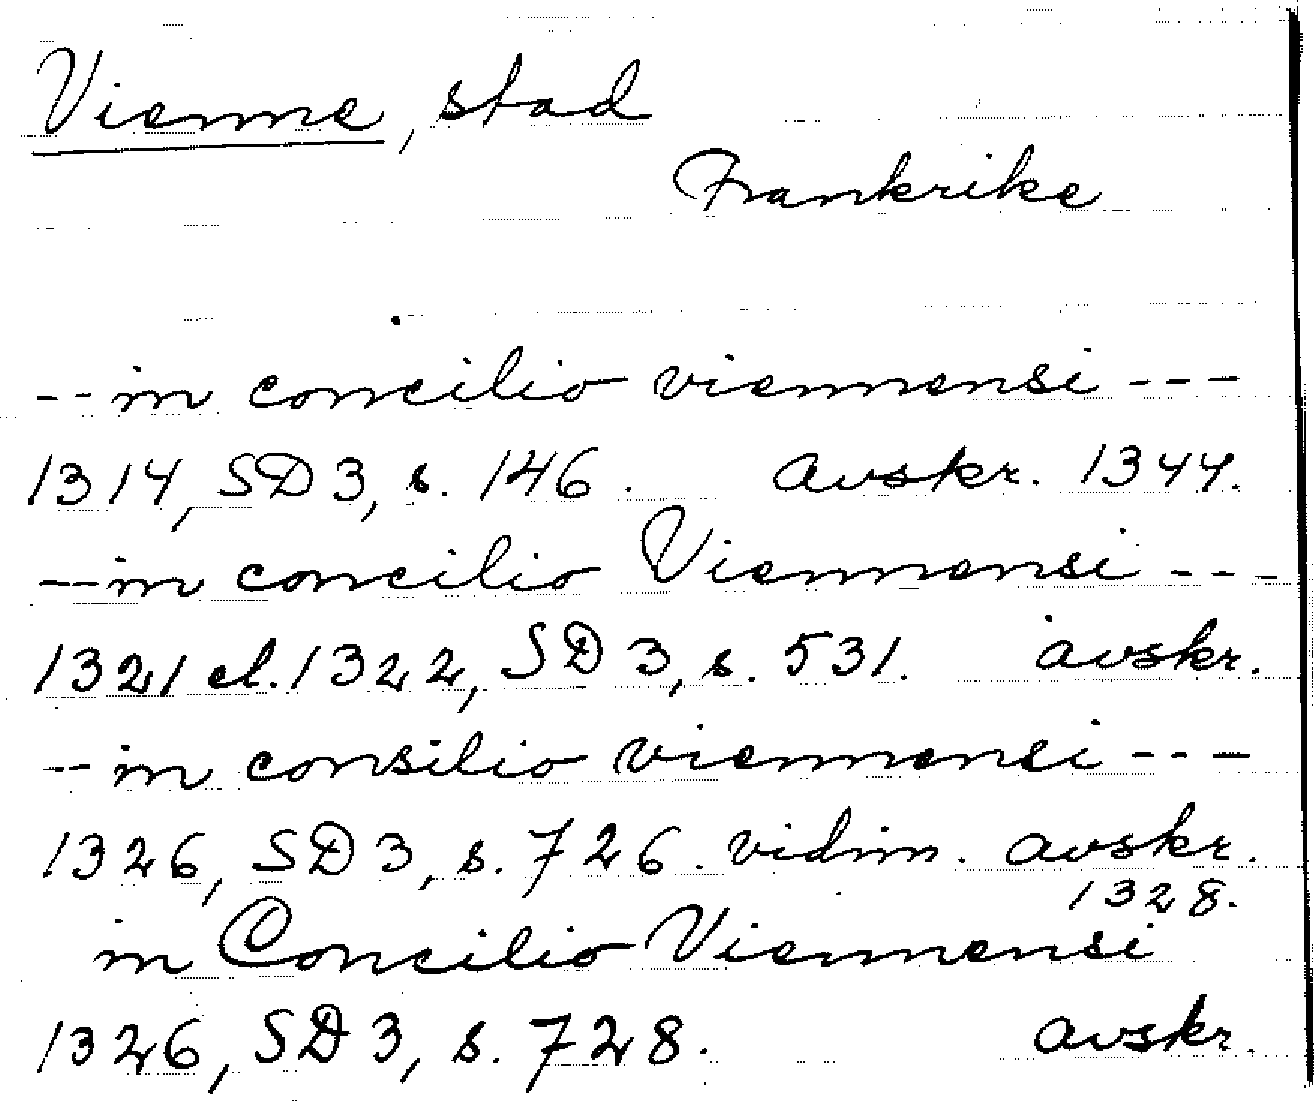 Vienne, stad
Frankrike
-- in concilio viennensi ---
1314, SD 3, s. 146. avskr. 1344.
-- in concilio Viennensi ---
1321 el. 1322, SD 3, s. 531. avskr.
-- in consilio viennensi ---
1326, SD 3, s. 726. vidim. avskr.
1328.
in Concilio Viennensi
1326, SD 3, s. 728. avskr.